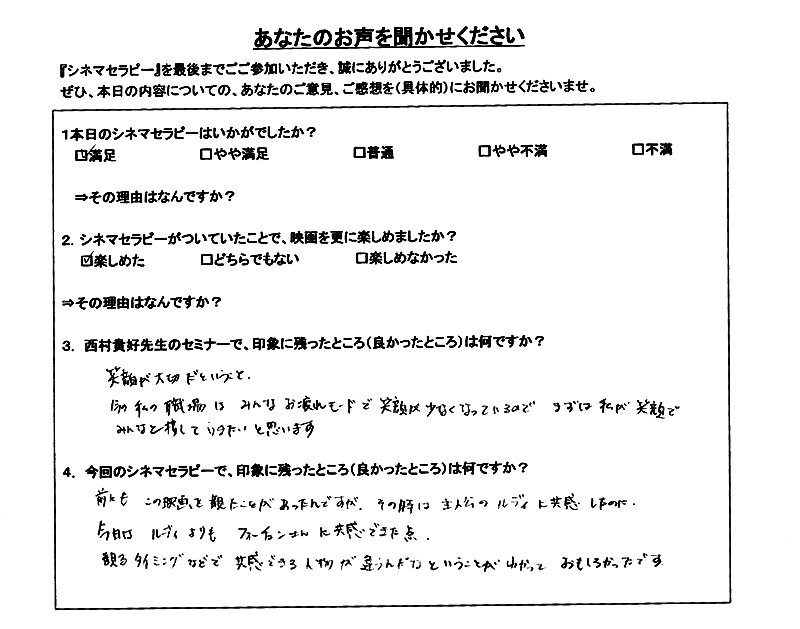 あなたのお声を聞かせください
『シネマセラピー』を最後までごご参加いただき、誠にありがとうございました。
ぜひ、本日の内容についての、あなたのご意見、ご感想を(具体的)にお聞かせくださいませ。
1本日のシネマセラピーはいかがでしたか？
☑満足 □やや満足 □普通 □やや不満 □不満
⇒その理由はなんですか？
2．シネマセラピーがついていたことで、映画を更に楽しめましたか？
☑楽しめた □どちらでもない □楽しめなかった
⇒その理由はなんですか？
3．西村貴好先生のセミナーで、印象に残ったところ(良かったところ)は何ですか？
笑顔が大切だということ.
私の職場は みんな お疲れモードで 笑顔が少なくなっているので まずは 私が 笑顔で
みんなと接して いきたいと思います
4．今回のシネマセラピーで、印象に残ったところ(良かったところ)は何ですか？
前にも この映画を観たことが あったんですが、その時は 主人公の ルディに共感 したのに.
今日は ルディよりも フォーチュンさんに共感できた点.
観るタイミングなどで 共感できる人物が 違うんだな ということが わかって おもしろかったです